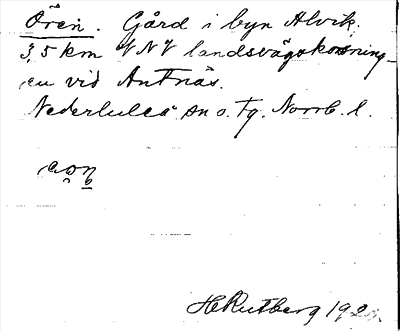 Ören. Gård i byn Alvik,
3,5 km VNV landsvägskorsning-
en vid Antnäs.
Nederluleå sn o. Tg. Norrb. l.
H Rutberg 192